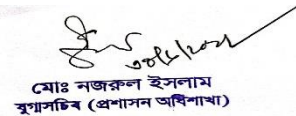 মোঃ নজরুল ইসলাম
যুগ্মসচিব (প্রশাসন অধিশাখা)